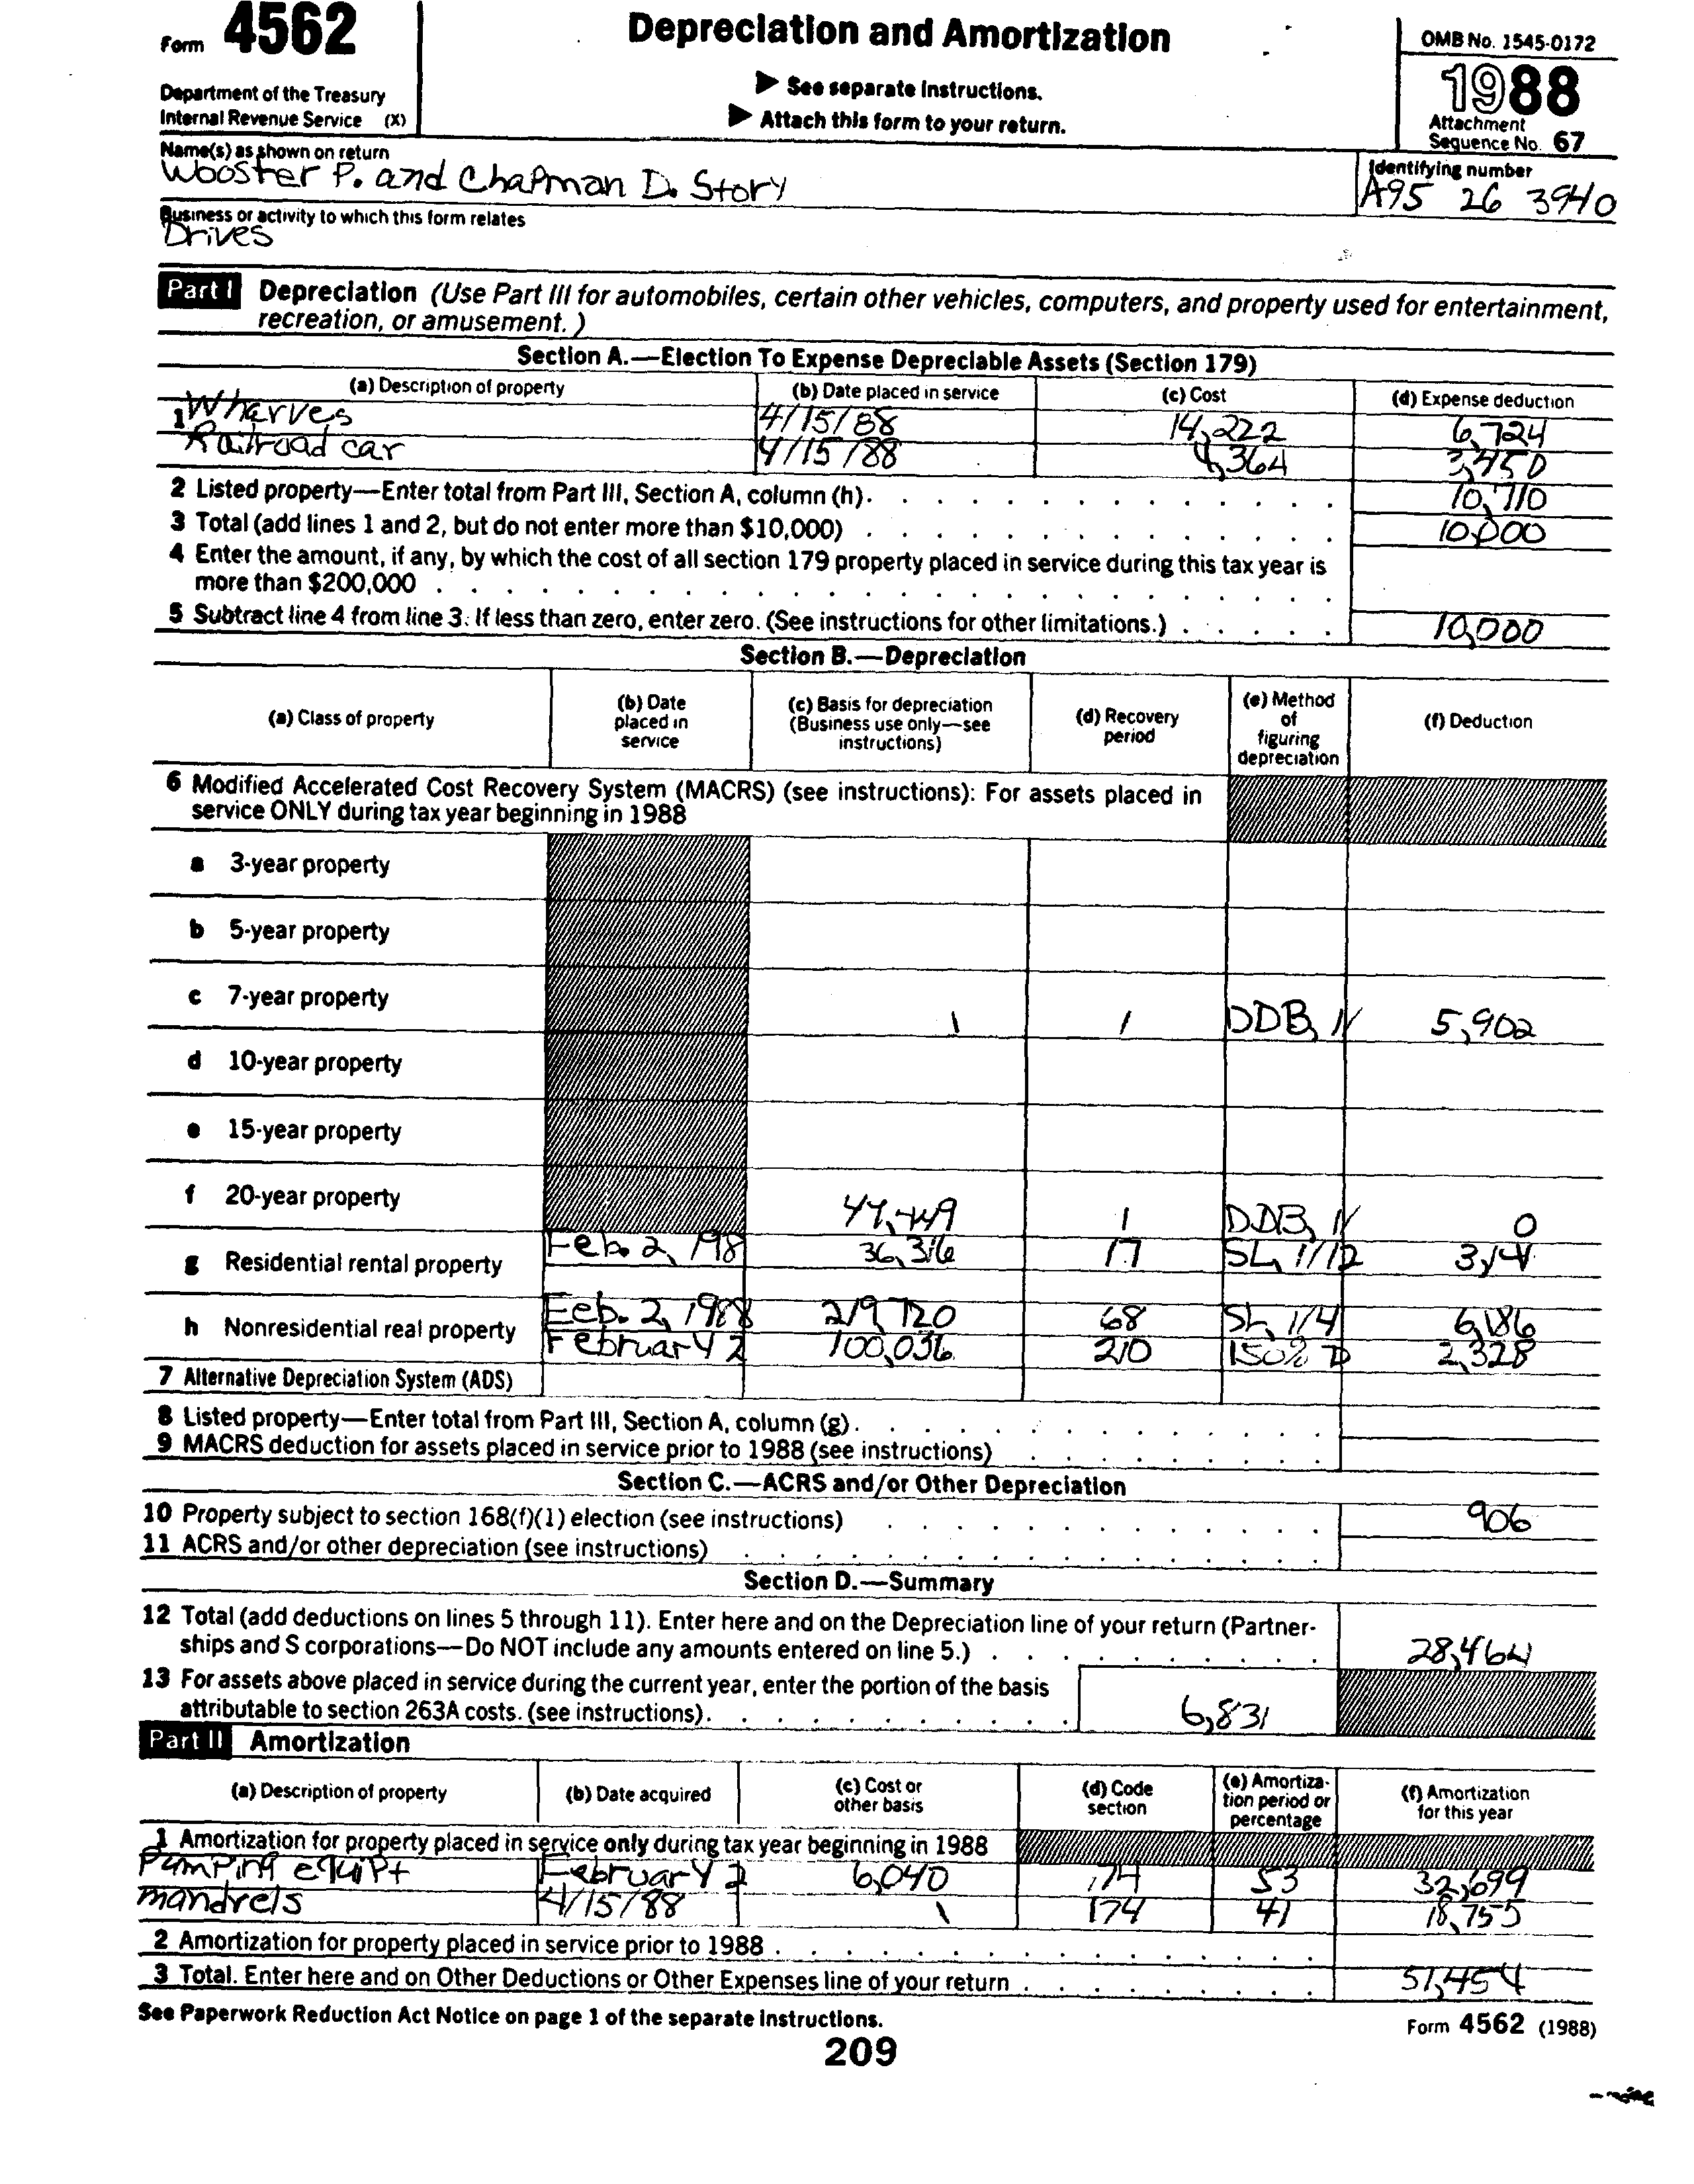 Form 4562
Department of the Treasury
Internal Revenue Service (X)
Depreciation and Amortization
▶ See separate instructions.
▶ Attach this form to your return.
OMB No. 1545-0172
1988
Attachment
Sequence No. 67
Name(s) as shown on return
Wooster P. and Chapman D. Story
Identifying number
A95 26 3940
Business or activity to which this form relates
Drives
Part I Depreciation (Use Part III for automobiles, certain other vehicles, computers, and property used for entertainment,
recreation, or amusement.)
Section A.—Election To Expense Depreciable Assets (Section 179)
(a) Description of property (b) Date placed in service (c) Cost (d) Expense deduction
1 Wharves 4/15/88 14,222 6,724
Railroad car 4/15/88 4,364 3,450
2 Listed property—Enter total from Part III, Section A, column (h). 10,710
3 Total (add lines 1 and 2, but do not enter more than $10,000) 10,000
4 Enter the amount, if any, by which the cost of all section 179 property placed in service during this tax year is
more than $200,000
5 Subtract line 4 from line 3. If less than zero, enter zero. (See instructions for other limitations.) 10,000
Section B.—Depreciation
(a) Class of property (b) Date placed in service (c) Basis for depreciation (Business use only—see instructions) (d) Recovery period (e) Method of figuring depreciation (f) Deduction
6 Modified Accelerated Cost Recovery System (MACRS) (see instructions): For assets placed in
service ONLY during tax year beginning in 1988
a 3-year property
b 5-year property
c 7-year property DDB, 5,902
d 10-year property
e 15-year property
f 20-year property DDB, 0
g Residential rental property Feb. 2, 198 36,316 17 SL, 1/12
h Nonresidential real property Feb. 2, 1988 219,720 68 SL, 1/4 6,186
February 2 100,036 210 150% D 2,328
7 Alternative Depreciation System (ADS)
8 Listed property—Enter total from Part III, Section A, column (g).
9 MACRS deduction for assets placed in service prior to 1988 (see instructions)
Section C.—ACRS and/or Other Depreciation
10 Property subject to section 168(f)(1) election (see instructions) 906
11 ACRS and/or other depreciation (see instructions)
Section D.—Summary
12 Total (add deductions on lines 5 through 11). Enter here and on the Depreciation line of your return (Partner-
ships and S corporations—Do NOT include any amounts entered on line 5.) 28,464
13 For assets above placed in service during the current year, enter the portion of the basis
attributable to section 263A costs. (see instructions). 6,831
Part II Amortization
(a) Description of property (b) Date acquired (c) Cost or other basis (d) Code section (e) Amortiza-tion period or percentage (f) Amortization for this year
1 Amortization for property placed in service only during tax year beginning in 1988
Pumping equipt February 2 6,040 174 53 32,699
mandrels 4/15/88 174 41 18,755
2 Amortization for property placed in service prior to 1988
3 Total. Enter here and on Other Deductions or Other Expenses line of your return 51,454
See Paperwork Reduction Act Notice on page 1 of the separate instructions.
Form 4562 (1988)
209